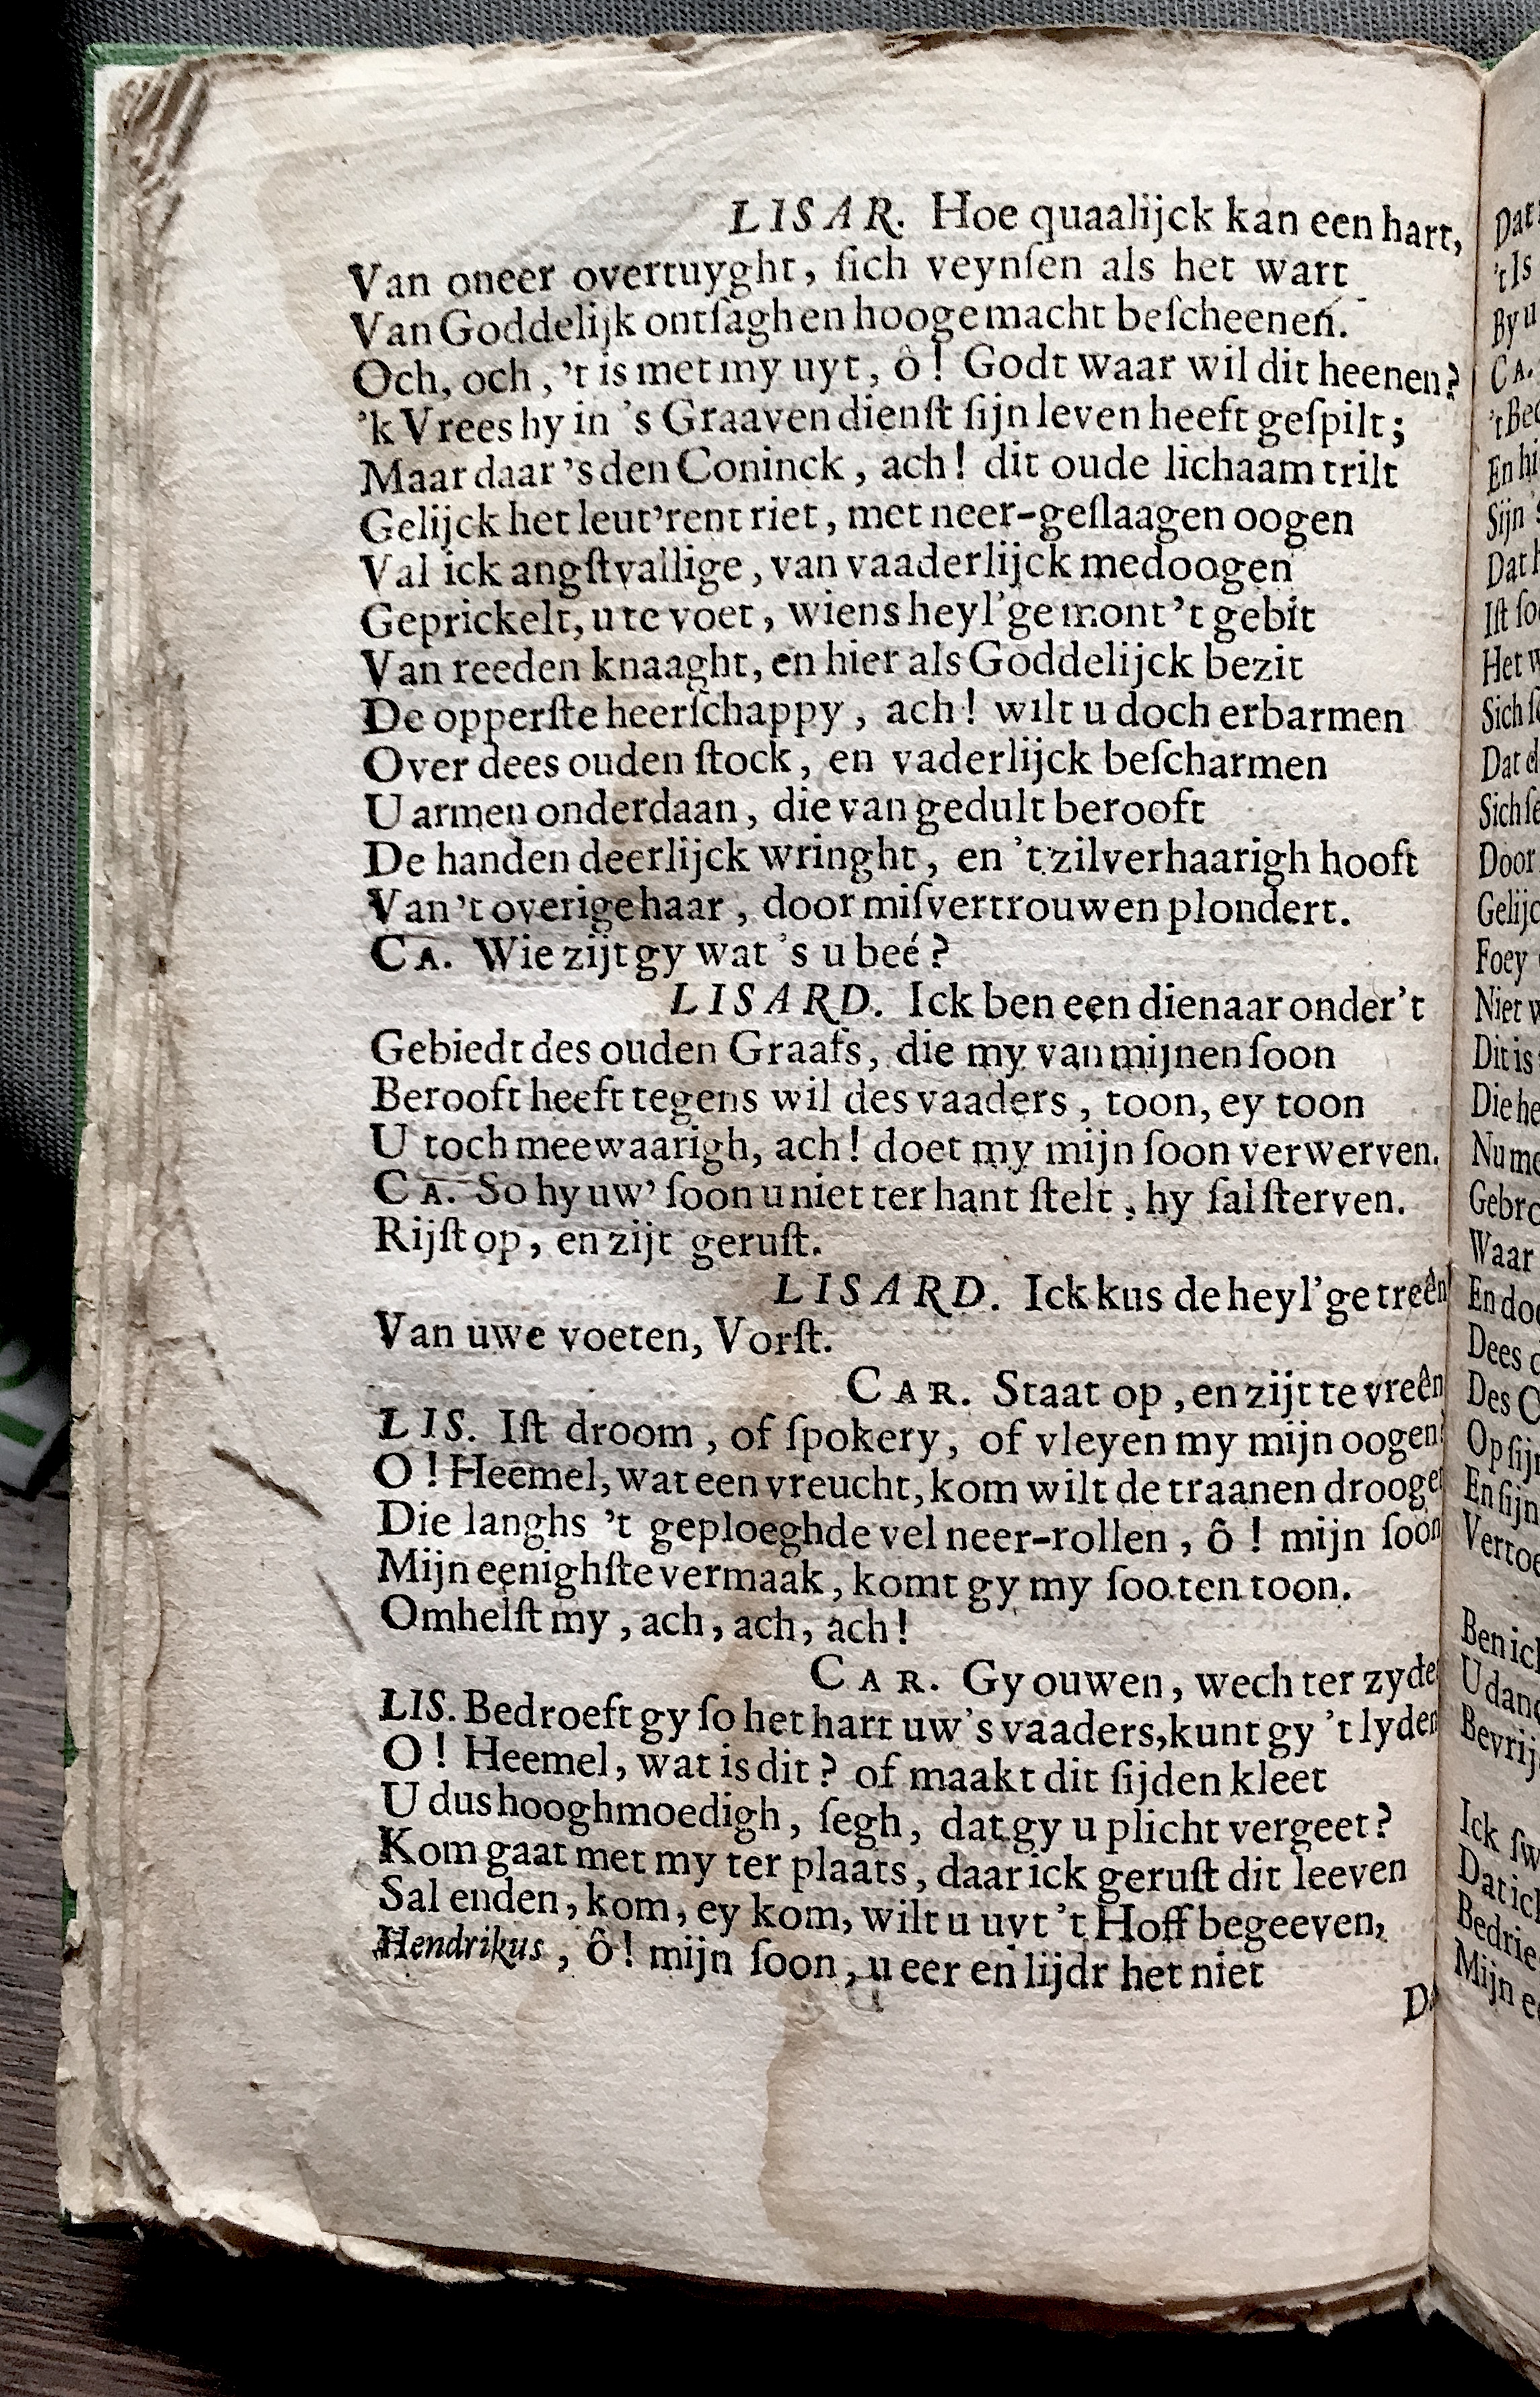 LISAR. Hoe quaalijck kan een hart,
Van oneer overtuyght, ſich veynſen als het wart
Van Goddelijk ontſaghen hooge macht beſcheenen.
Och, och, 't is met my uyt, ô! Godt waar wil dit heenen?
'k Vrees hy in 's Graaven dienſt ſijn leven heeft geſpilt;
Maar daar 's den Coninck, ach! dit oude lichaam trilt
Gelijck het leut'rent riet, met neer-geſlaagen oogen
Val ick angſtvallige, van vaaderlijck medoogen
Geprickelt, u te voet, wiens heyl'ge mont 't gebit
Van reeden knaaght, en hier als Goddelijck bezit
De opperſte heerſchappy, ach! wilt u doch erbarmen
Over dees ouden ſtock, en vaderlijck beſcharmen
U armen onderdaan, die van gedult berooft
De handen deerlijck wringht, en 't zilverhaarigh hooft
Van 't overige haar, door miſvertrouwen plondert.
CA. Wie zijt gy wat 's u beé?
LISARD. Ick ben een dienaar onder 't
Gebiedt des ouden Graafs, die my van mijnen ſoon
Berooft heeft tegens wil des vaaders, toon, ey toon
U toch meewaarigh, ach! doet my mijn ſoon verwerven.
CA. So hy uw' ſoon u niet ter hant ſtelt, hy ſal ſterven.
Rijſt op, en zijt geruſt.
LISARD. Ick kus de heyl'ge treên
Van uwe voeten, Vorſt.
CAR. Staat op, en zijt te vreên
LIS. Iſt droom, of ſpokery, of vleyen my mijn oogen
O! Heemel, wat een vreucht, kom wilt de traanen drooge
Die langhs 't geploeghde vel neer-rollen, ô! mijn ſoon
Mijn eenighſte vermaak, komt gy my ſoo ten toon.
Omhelſt my, ach, ach, ach!
CAR. Gy ouwen, wech ter zyde
LIS. Bedroeft gy ſo het hart uw's vaaders, kunt gy 't lyden
O! Heemel, wat is dit? of maakt dit ſijden kleet
U dus hooghmoedigh, ſegh, dat gy u plicht vergeet?
Kom gaat met my ter plaats, daar ick geruſt dit leeven
Sal enden, kom, ey kom, wilt u uyt 't Hoff begeeven,
Hendrikus, ô! mijn ſoon, u eer en lijdt het niet
Dat
't Is
By u
CA.
't Bed
En hi
Sijn
Dat
Iſt ſo
Het
Sich
Dat
Sich
Door
Gelijc
Foey
Niet
Dit is
Die he
Nu me
Gebro
Waar
En do
Dees
Des C
Op ſij
En ſijn
Verto
Ben ic
U dan
Bevrij
Ick ſw
Dat ic
Bedrie
Mijn e